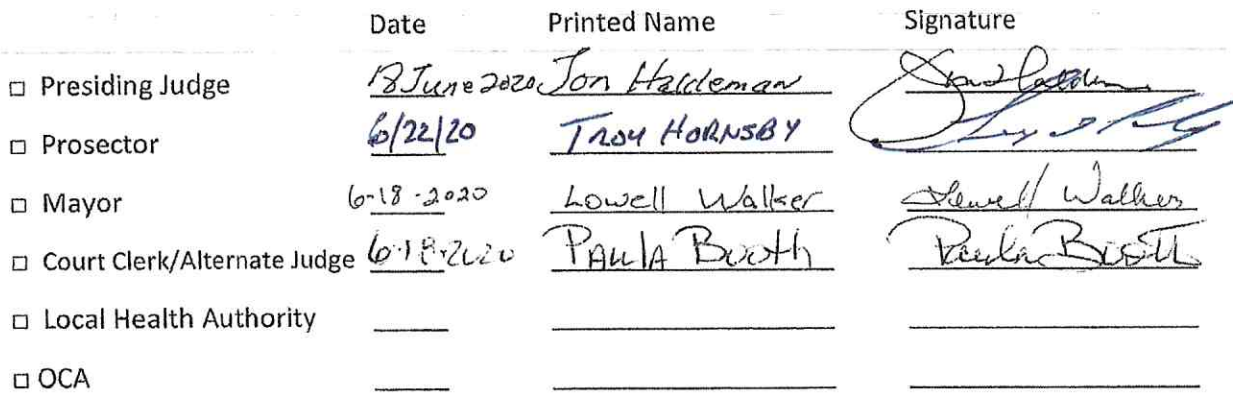 Date Printed Name Signature
□ Presiding Judge 18 June 2020 Jon Haldeman
□ Prosector 6/22/20 TROY HORNSBY
□ Mayor 6-18-2020 Lowell Walker Lowell Walker
□ Court Clerk/Alternate Judge 6-18-2020 PAULA Booth Paula Booth
□ Local Health Authority
□ OCA